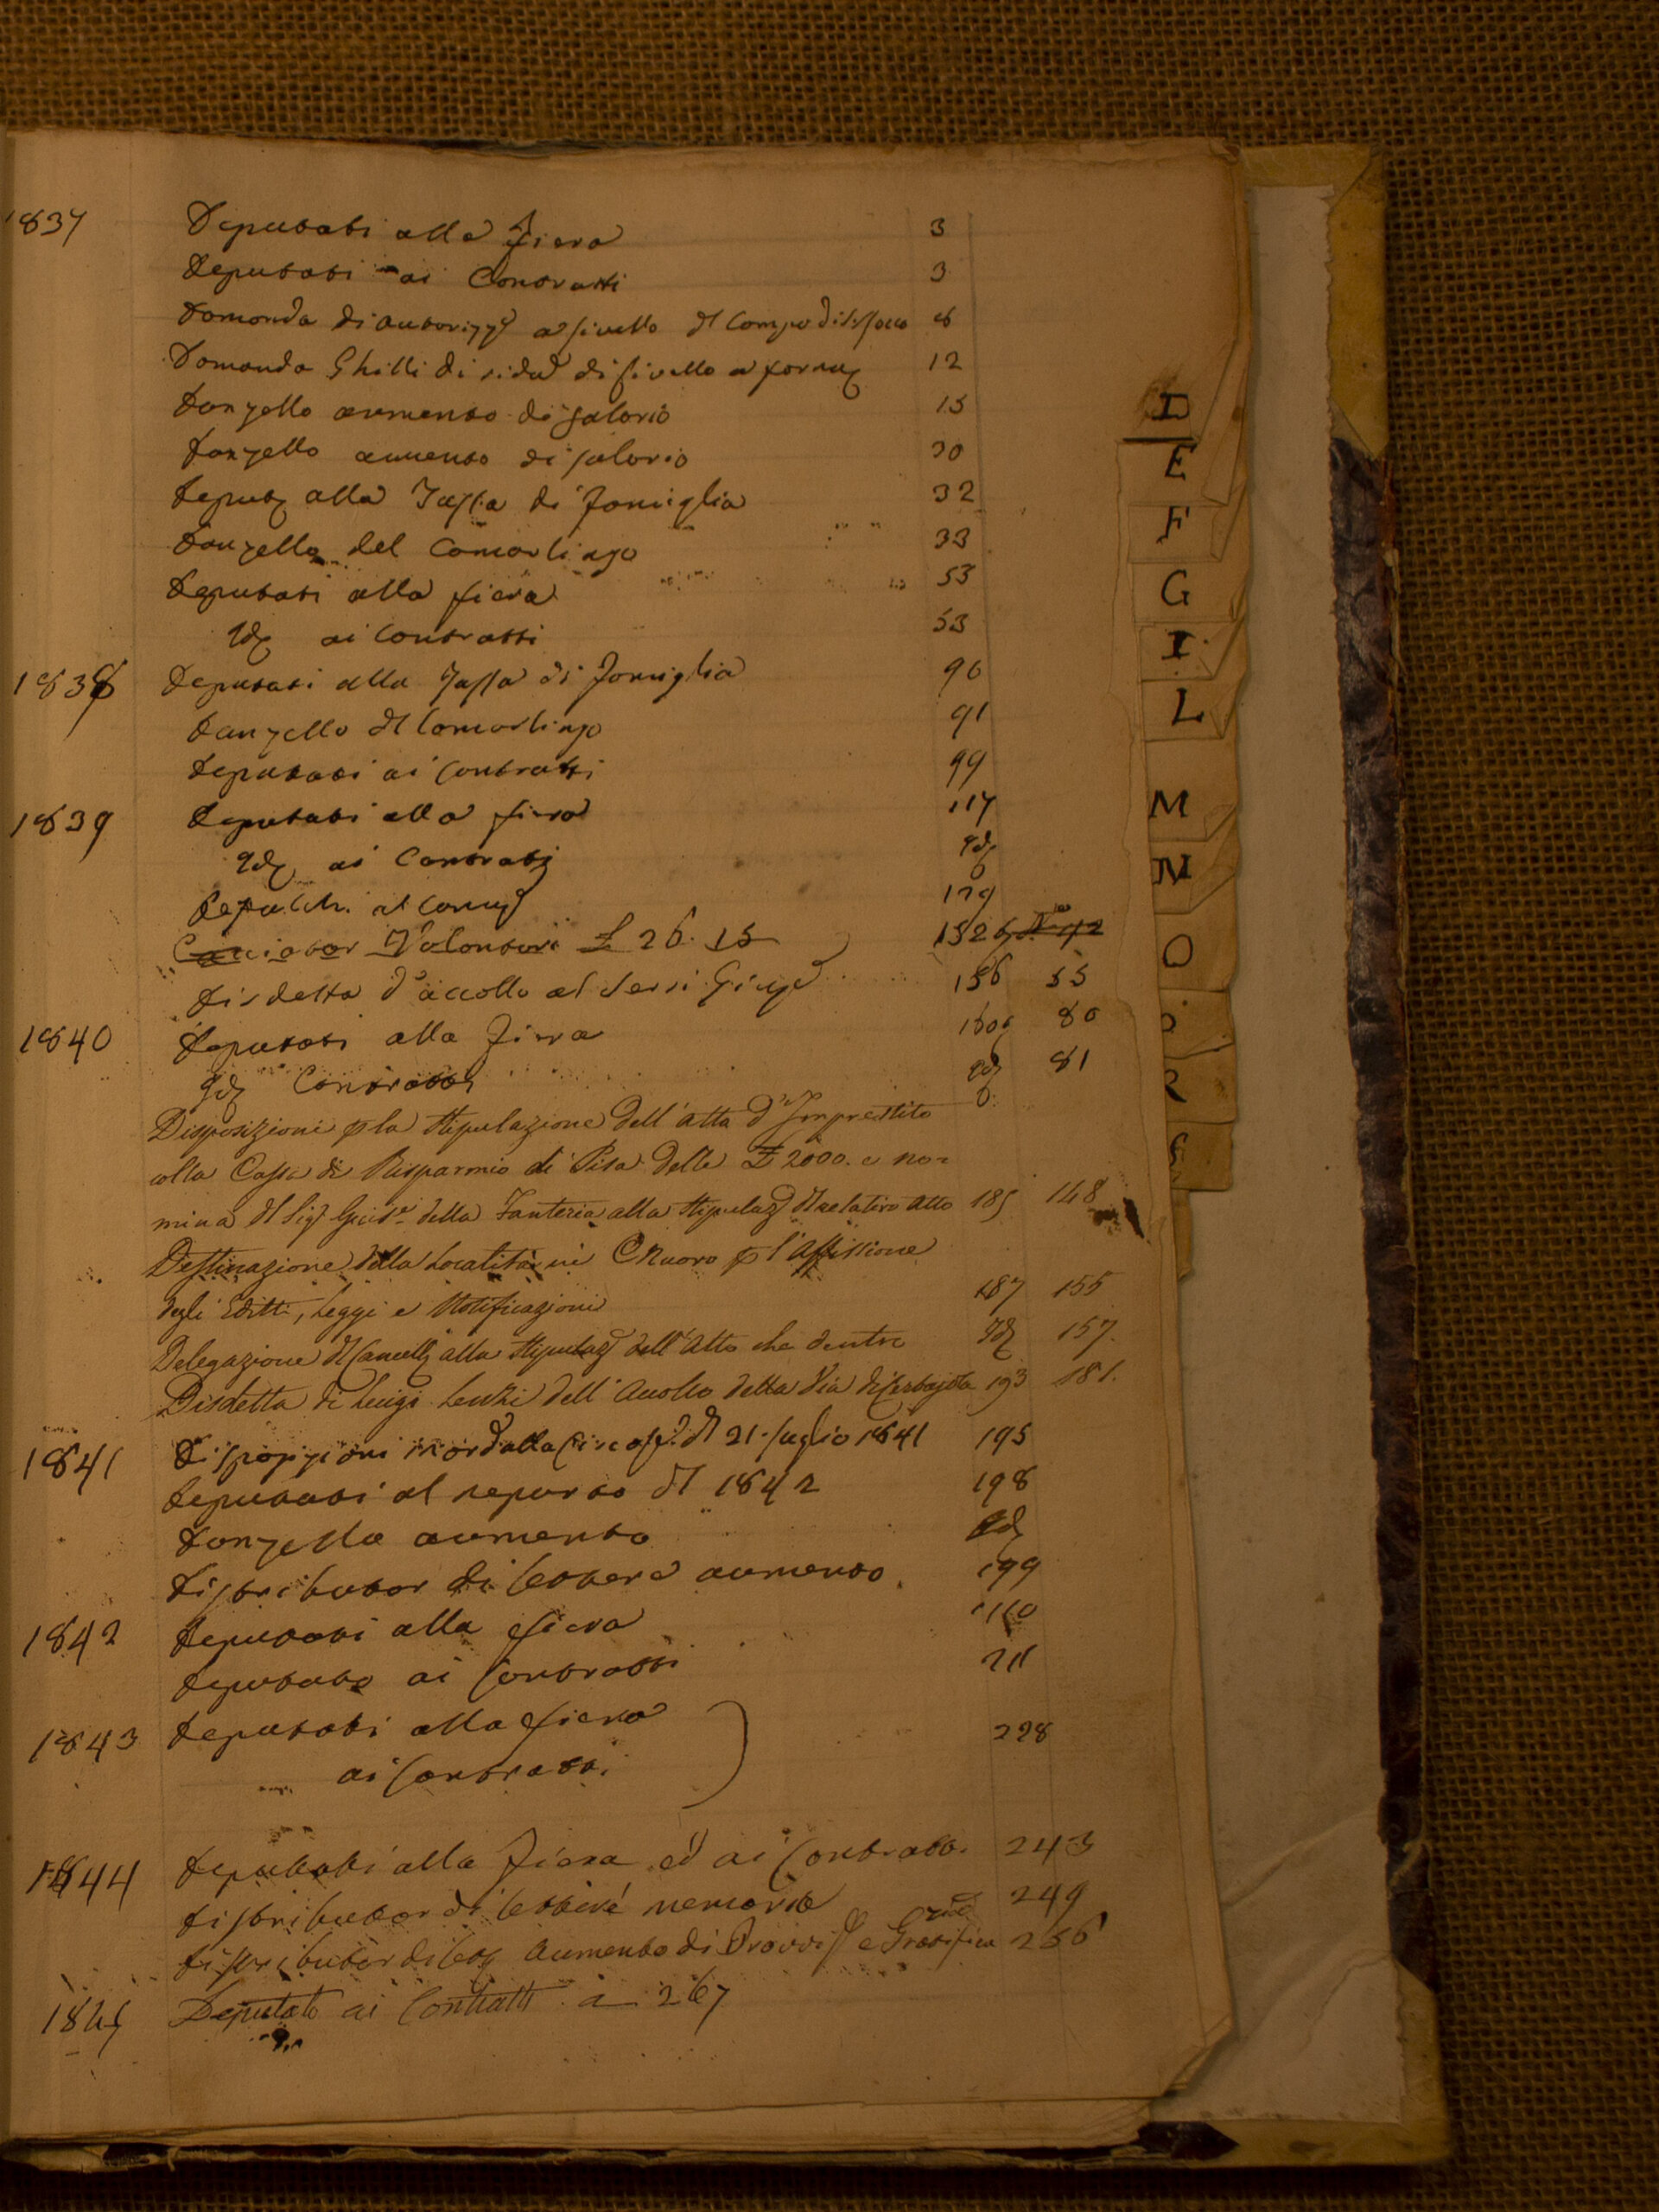 1837 Deputati alla Fiera 3
Deputati ai Contratti 3
Domanda di a livello del Campo 6
Domanda Ghilli di di livello a 12
Donzello aumento di salario 15
Donzello aumento di salario 30
Deput alla Tassa di Famiglia 32
Donzello del Camarlingo 33
Deputati alla fiera 53
Id ai Contratti 53
1838 Deputati alla Tassa di Famiglia 90
Donzello del Camarlingo 91
Deputati ai Contratti 99
1839 Deputati alla fiera 117
Id ai Contratti Id
al 129
Cacciator Volontari £ 26. 15 152
Disdetta d'accollo al Sersi 156 55
1840 Deputati alla Fiera 160 80
Id Contratti Id 81
Disposizioni p la Stipulazione dell'atto d'Imprestito
colla Cassa di Risparmio di Pisa delle £ 2000. e no=
mina del Sig della Fanteria alla Stipulaz del relativo atto 185 148
Destinazione della Località in p l'Affissione
degli Editti, Leggi e Notificazioni 187 155
Delegazione del Cancell alla Stipulaz dell'Atto che dentro Id 157.
Disdetta di Luigi Lenzi dell'Accollo della Via di 193 181.
1841 Disposizioni dalla del 21. luglio 1841 195
Deputati al reparto del 1842 198
Donzello aumento Id
Distributor di Lettere aumento 199
1842 Deputati alla fiera 210
Deputato ai Contratti 211
1843 Deputati alla fiera 228
ai Contratti
1844 Deputati alla Fiera ed ai Contratti 243
Distributor di Lettere memoria 249
Distributor di Lett Aumento di Provvis e Gratifica 256
1845 Deputato ai Contratti a 267
D
E
F
G
I
L
M
N
O
R
S